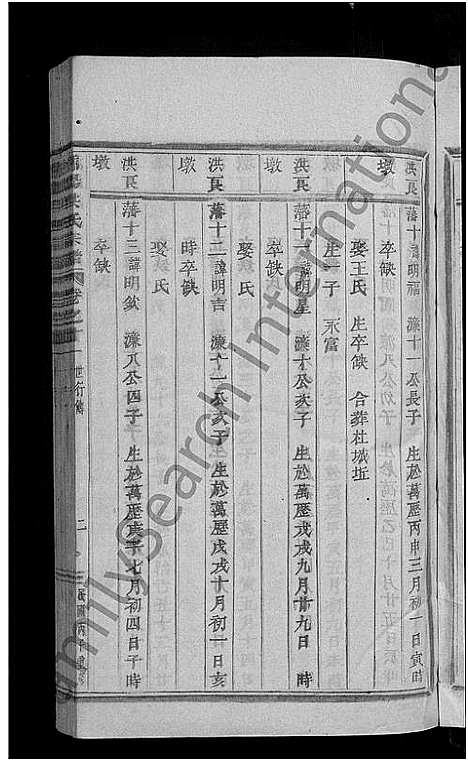 洪良墩
藩十諱明福 濂十一公長子 生於萬歷丙申三月初一日寅時
卒缺
娶王氏 生卒缺 合葬社城坵
生一子 永富
洪良墩
藩十一諱明星 濂十公次子 生於萬歷戊戌九月廿九日 時
卒缺
娶 氏
洪良墩
藩十二諱明吉 濂十一公次子 生於萬歷戊戌十月初一日亥
時卒缺
娶 氏
洪良墩
藩十三諱明欽 濂八公四子 生於萬歷庚子七月初四日子時
卒缺
氏宗譜
卷之十一
世行傳
二
FamilySearch International